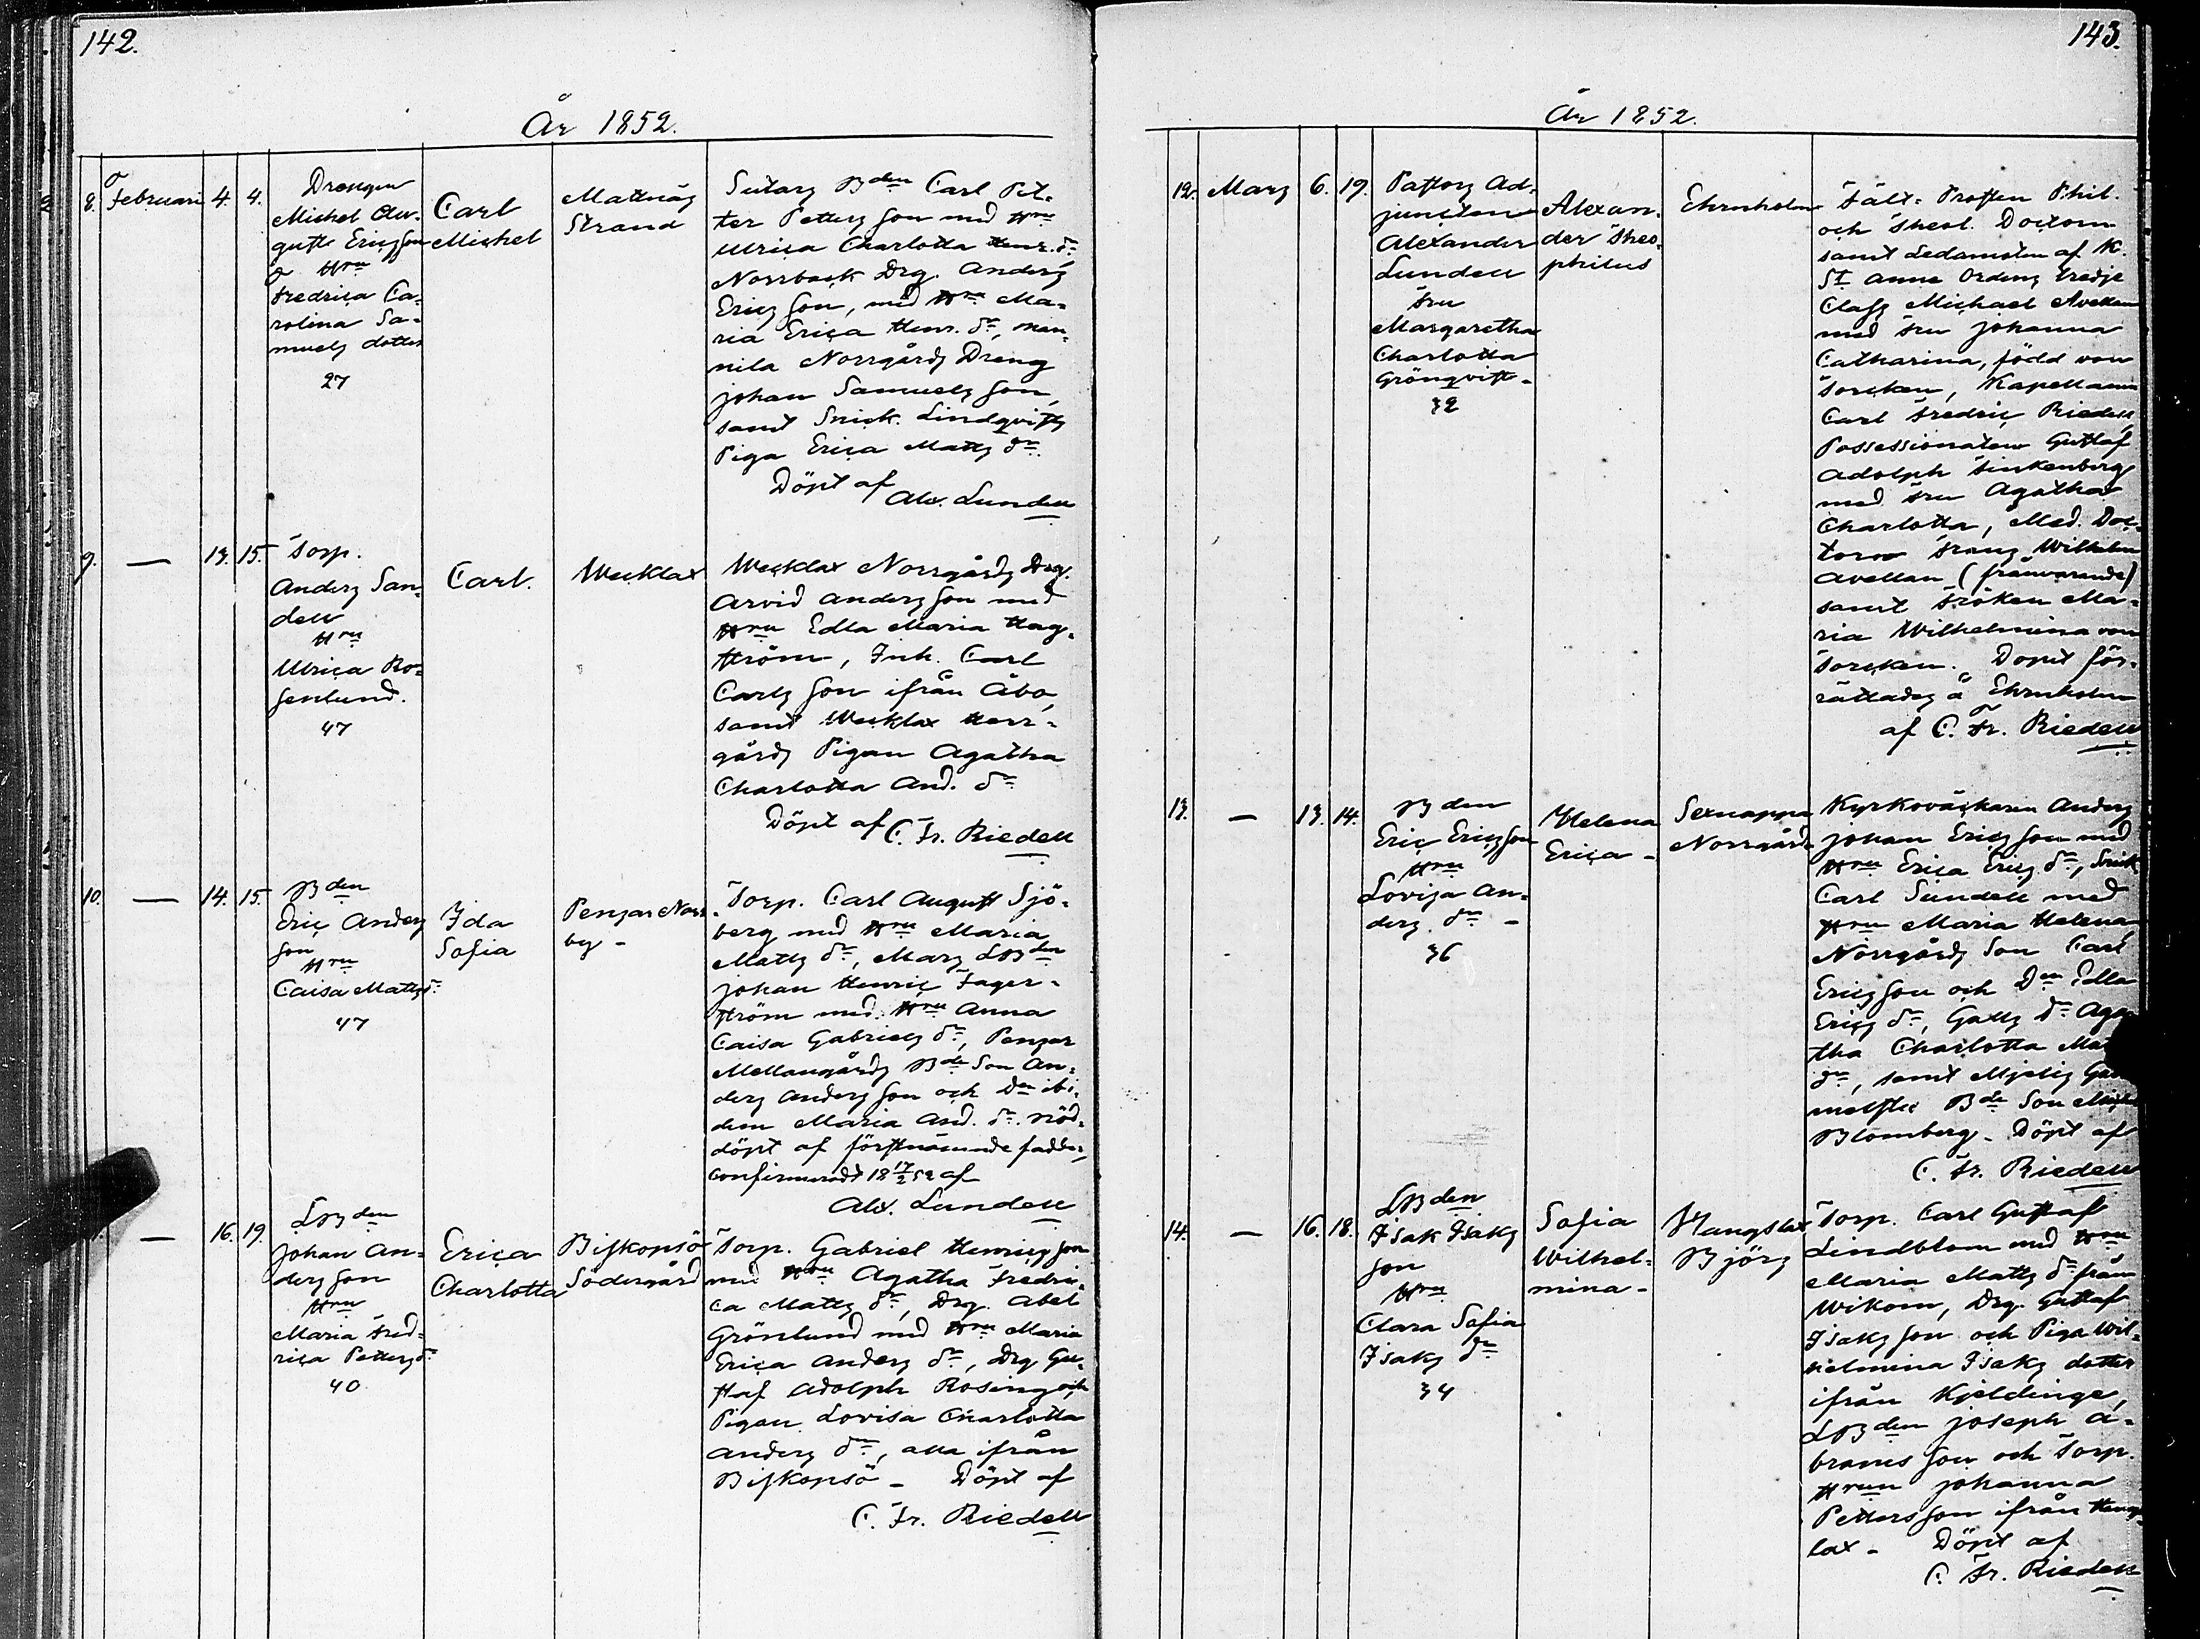 142.
År 1852.
8. Februari 4. 4.
Drengen
Michel Au-
gust Ericsson
Hru
Fredrica Ca-
rolina Sa-
muels dotter
27
Carl
Michel
Mattnäs
Strand
Sutars Bden Carl Pet-
ter Petters son med Hru
Ulrica Charlotta Henr. dr
Norrback Drg. Anders
Erics son, med Hru Ma-
ria Erica Henr. dr, Man-
nila Norrgårds Dreng
Johan Samuels son,
samt Snick. Lindqvists
Piga Erica Matts dr.
Döpt af
Alx. Lundell
9. — 13. 15.
Torp.
Anders San-
dell
Hru
Ulrica Ro-
senlund.
47
Carl.
Wecklax
Wecklax Norrgårds Drg.
Arvid Anders son med
Hru Edla Maria Hag-
ström, Inh. Carl
Carls son ifrån Åbo,
samt Wecklax Herr-
gårds Pigan Agatha
Charlotta And. dr
Döpt af C. Fr. Riedell
10. — 14. 15.
Bden
Eric Anders
son
Hru
Caisa Matts dr.
47
Ida
Sofia
Pensar Norr-
by -
Torp. Carl August Sjö-
berg med Hru Maria
Matts dr, Mars LBden
Johan Henric Fager-
ström med Hru Anna
Caisa Gabriels dr, Pensar
Mellangårds Bde Son An-
ders Anders son och Dn ibi-
dem Maria And. dr. Nöd-
döpt af förstnämnde fadder,
confirmeradt 18 17/2 52 af
Alx. Lundell
— 16. 19.
LBden
Johan An-
ders son
Hru
Maria Fred-
rica Petters dr.
40
Erica
Charlotta
Biskopsö
Södergård
Torp. Gabriel Henrics son
med Hru Agatha Fredri-
ca Matts dr, Drg. Abel
Grönlund med Hru Maria
Erica Anders dr, Drg Gu-
staf Adolph Rosing och
Pigan Lovisa Charlotta
Anders dr, alla ifrån
Biskopsö - Döpt af
C. Fr. Riedell
143.
År 1852.
12. Mars 6. 19.
Pastors Ad-
juncten
Alexander
Lundell
Fru
Margaretha
Charlotta
Grönqvist -
32
Alexan-
der Theo-
philus
Ehrnholm
Fält-Prosten Phil.
och Theol. Doctorn
samt Ledamoten af K.
St Anne Ordens tredje
Class Michael Avellan
med Fru Johanna
Catharina, född von
Torcken, Kapellanen
Carl Fredric Riedell,
Possessionaten Gustaf
Adolph Finkenberg
med Fru Agatha
Charlotta, Med. Doc-
toren Frans Wilhelm
Avellan (frånvarande)
samt Fröken Ma-
ria Wilhelmina von
Torcken. Dopet för-
rättades å Ehrnholm
af C. Fr. Riedell
13. — 13. 14.
Bden
Eric Ericsson
Hru
Lovisa An-
ders. dr -
36
Helena
Erica -
Sexnappa
Norrgård
Kyrkoväckaren Anders
Johan Erics son med
Hru Erica Erics dr, Snick
Carl Sundell med
Hru Maria Helena,
Norrgårds Son Carl
Erics son och Dn Edla
Erics dr, Galls Dr Aga-
tha Charlotta
dr, samt Mjelis
Bde Son
Blomberg - Döpt af
C. Fr. Riedell
14. — 16. 18.
LBden
Isak Isaks
son
Hru
Clara Sofia
Isaks dr
34
Sofia
Wilhel-
mina -
Hangslax
Björs
Torp. Carl Gustaf
Lindblom med Hru
Maria Matts dr från
Wikom, Drg. Gustaf
Isaks son och Piga Wil-
helmina Isaks dotter
ifrån Kjeldinge,
LBden Joseph A-
brams son och Torp.
Hrun Johanna
Petters son ifrån Hengs-
lax - Döpt af
C. Fr. Riedell